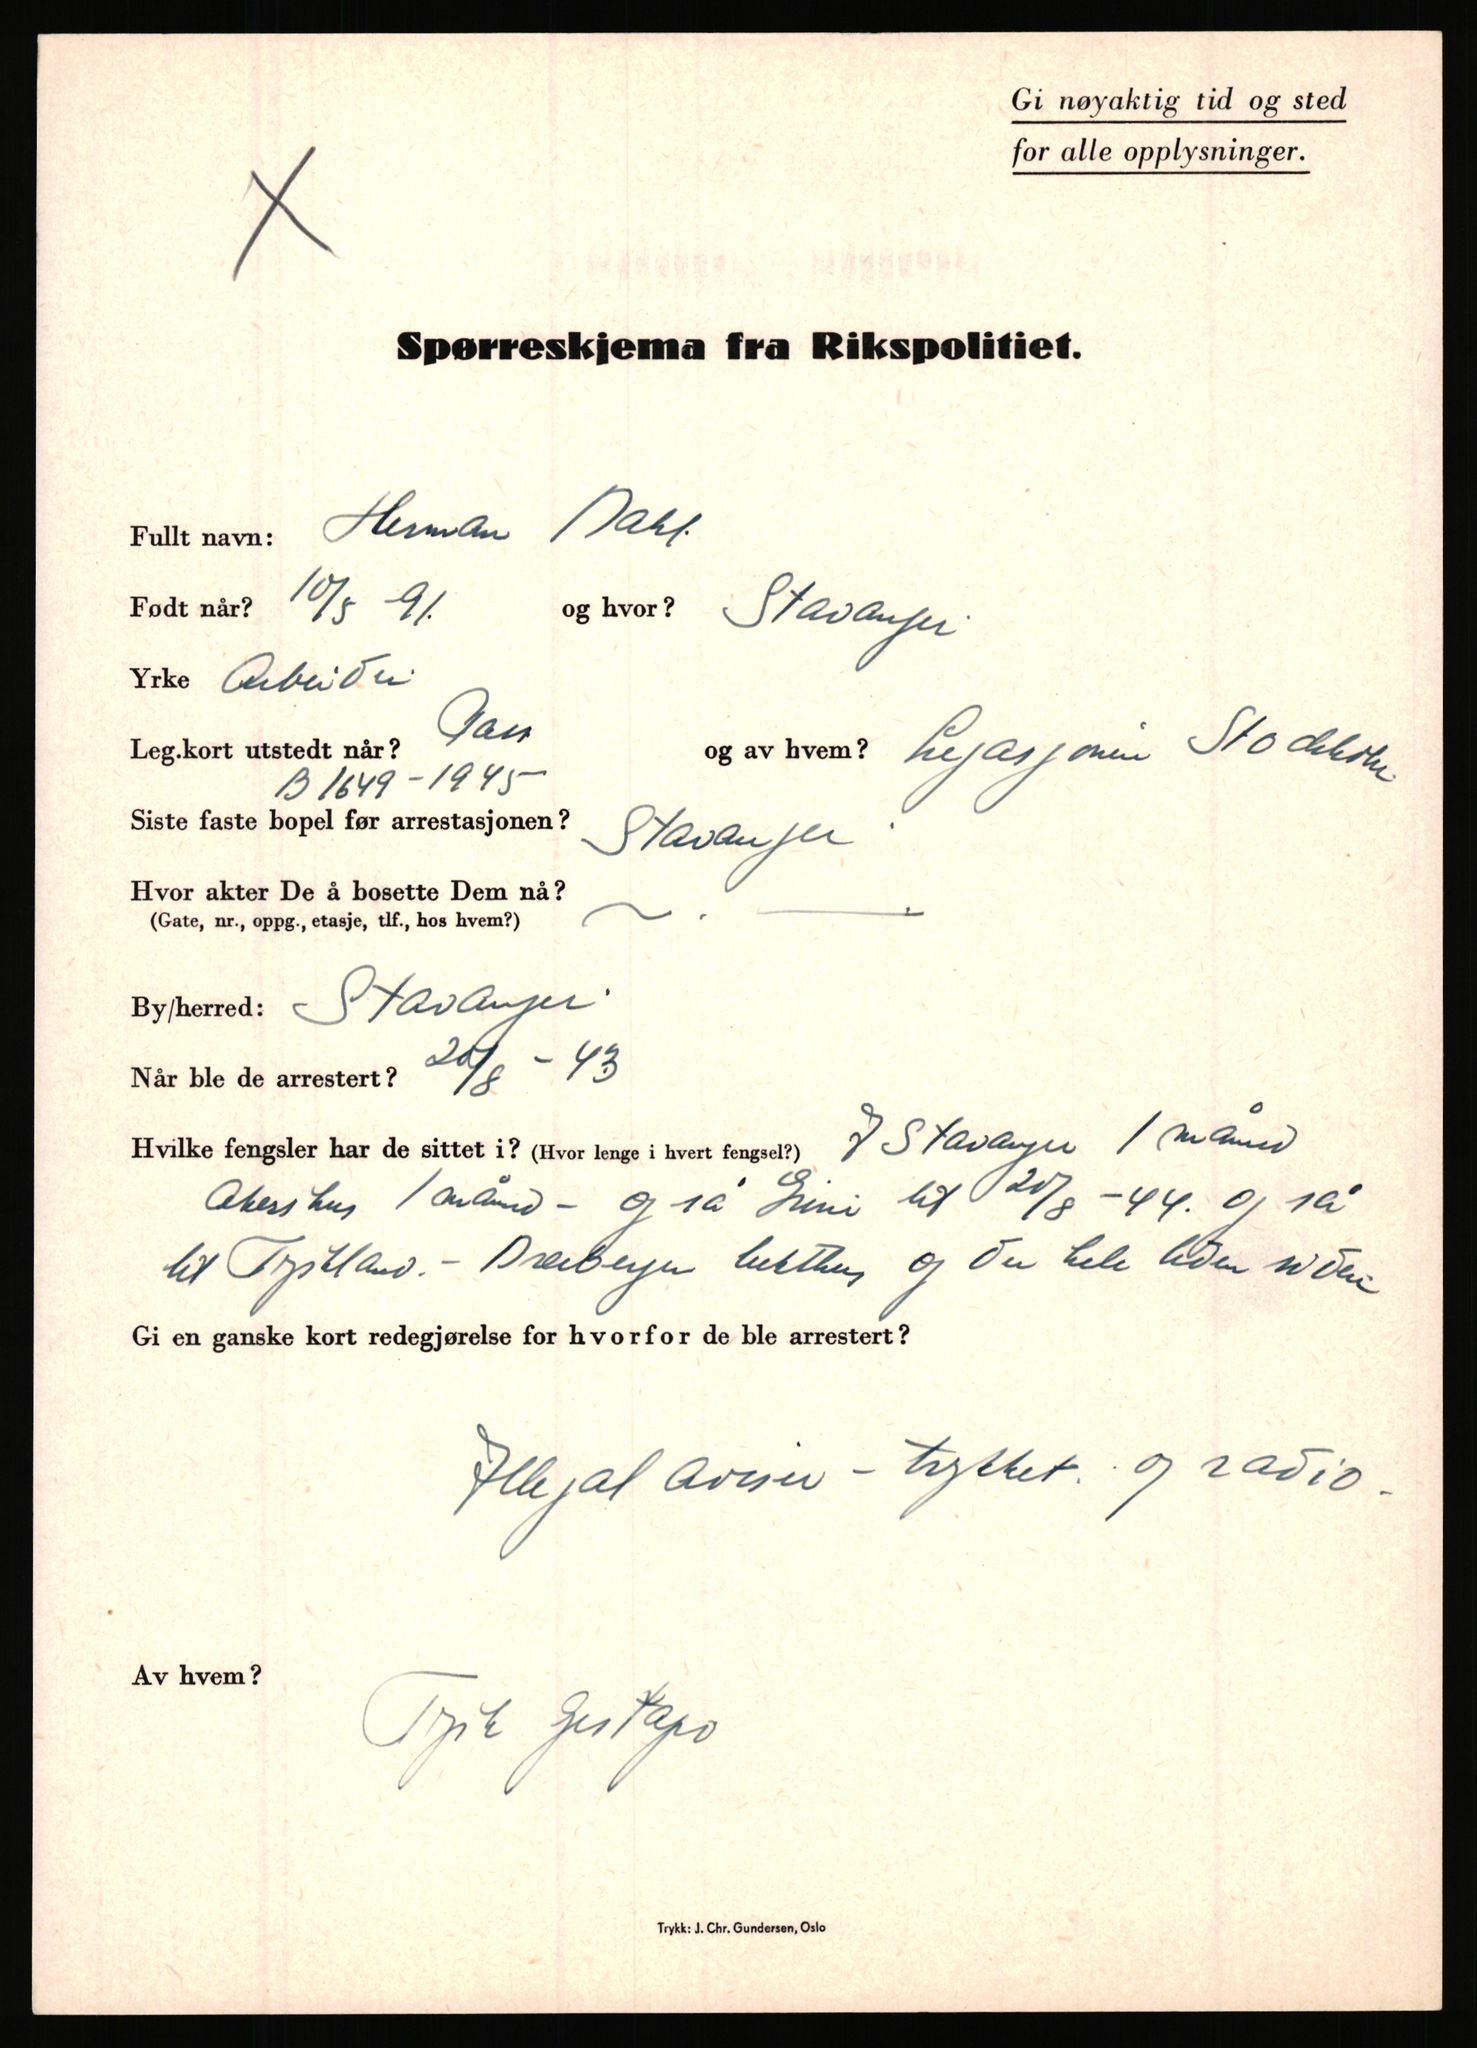 Gi nøyaktig tid og sted
for alle opplysninger.
X
Spørreskjema fra Rikspolitiet.
Fullt navn: Herman Dahl.
Født når? 10/5 - 91. og hvor? Stavanger
Yrke Arbeider
Leg.kort utstedt når? Pass og av hvem? Legasjonen Stockholm
B 1649 - 1945
Siste faste bopel før arrestasjonen? Stavanger
Hvor akter De å bosette Dem nå?
(Gate, nr., oppg., etasje, tlf., hos hvem?)
By/herred: Stavanger
Når ble de arrestert? 20/8 - 43
Hvilke fengsler har de sittet i? (Hvor lenge i hvert fengsel?) I Stavanger 1 måned
Akershus 1 måned - og så Grini til 20/8 - 44. og så
til Tyskland. - Dreibergen tukthus og der hele tiden siden
Gi en ganske kort redegjørelse for hvorfor de ble arrestert?
Illegal aviser - trykket. og radio -
Av hvem?
Tysk Gestapo
Trykk: J. Chr. Gundersen, Oslo